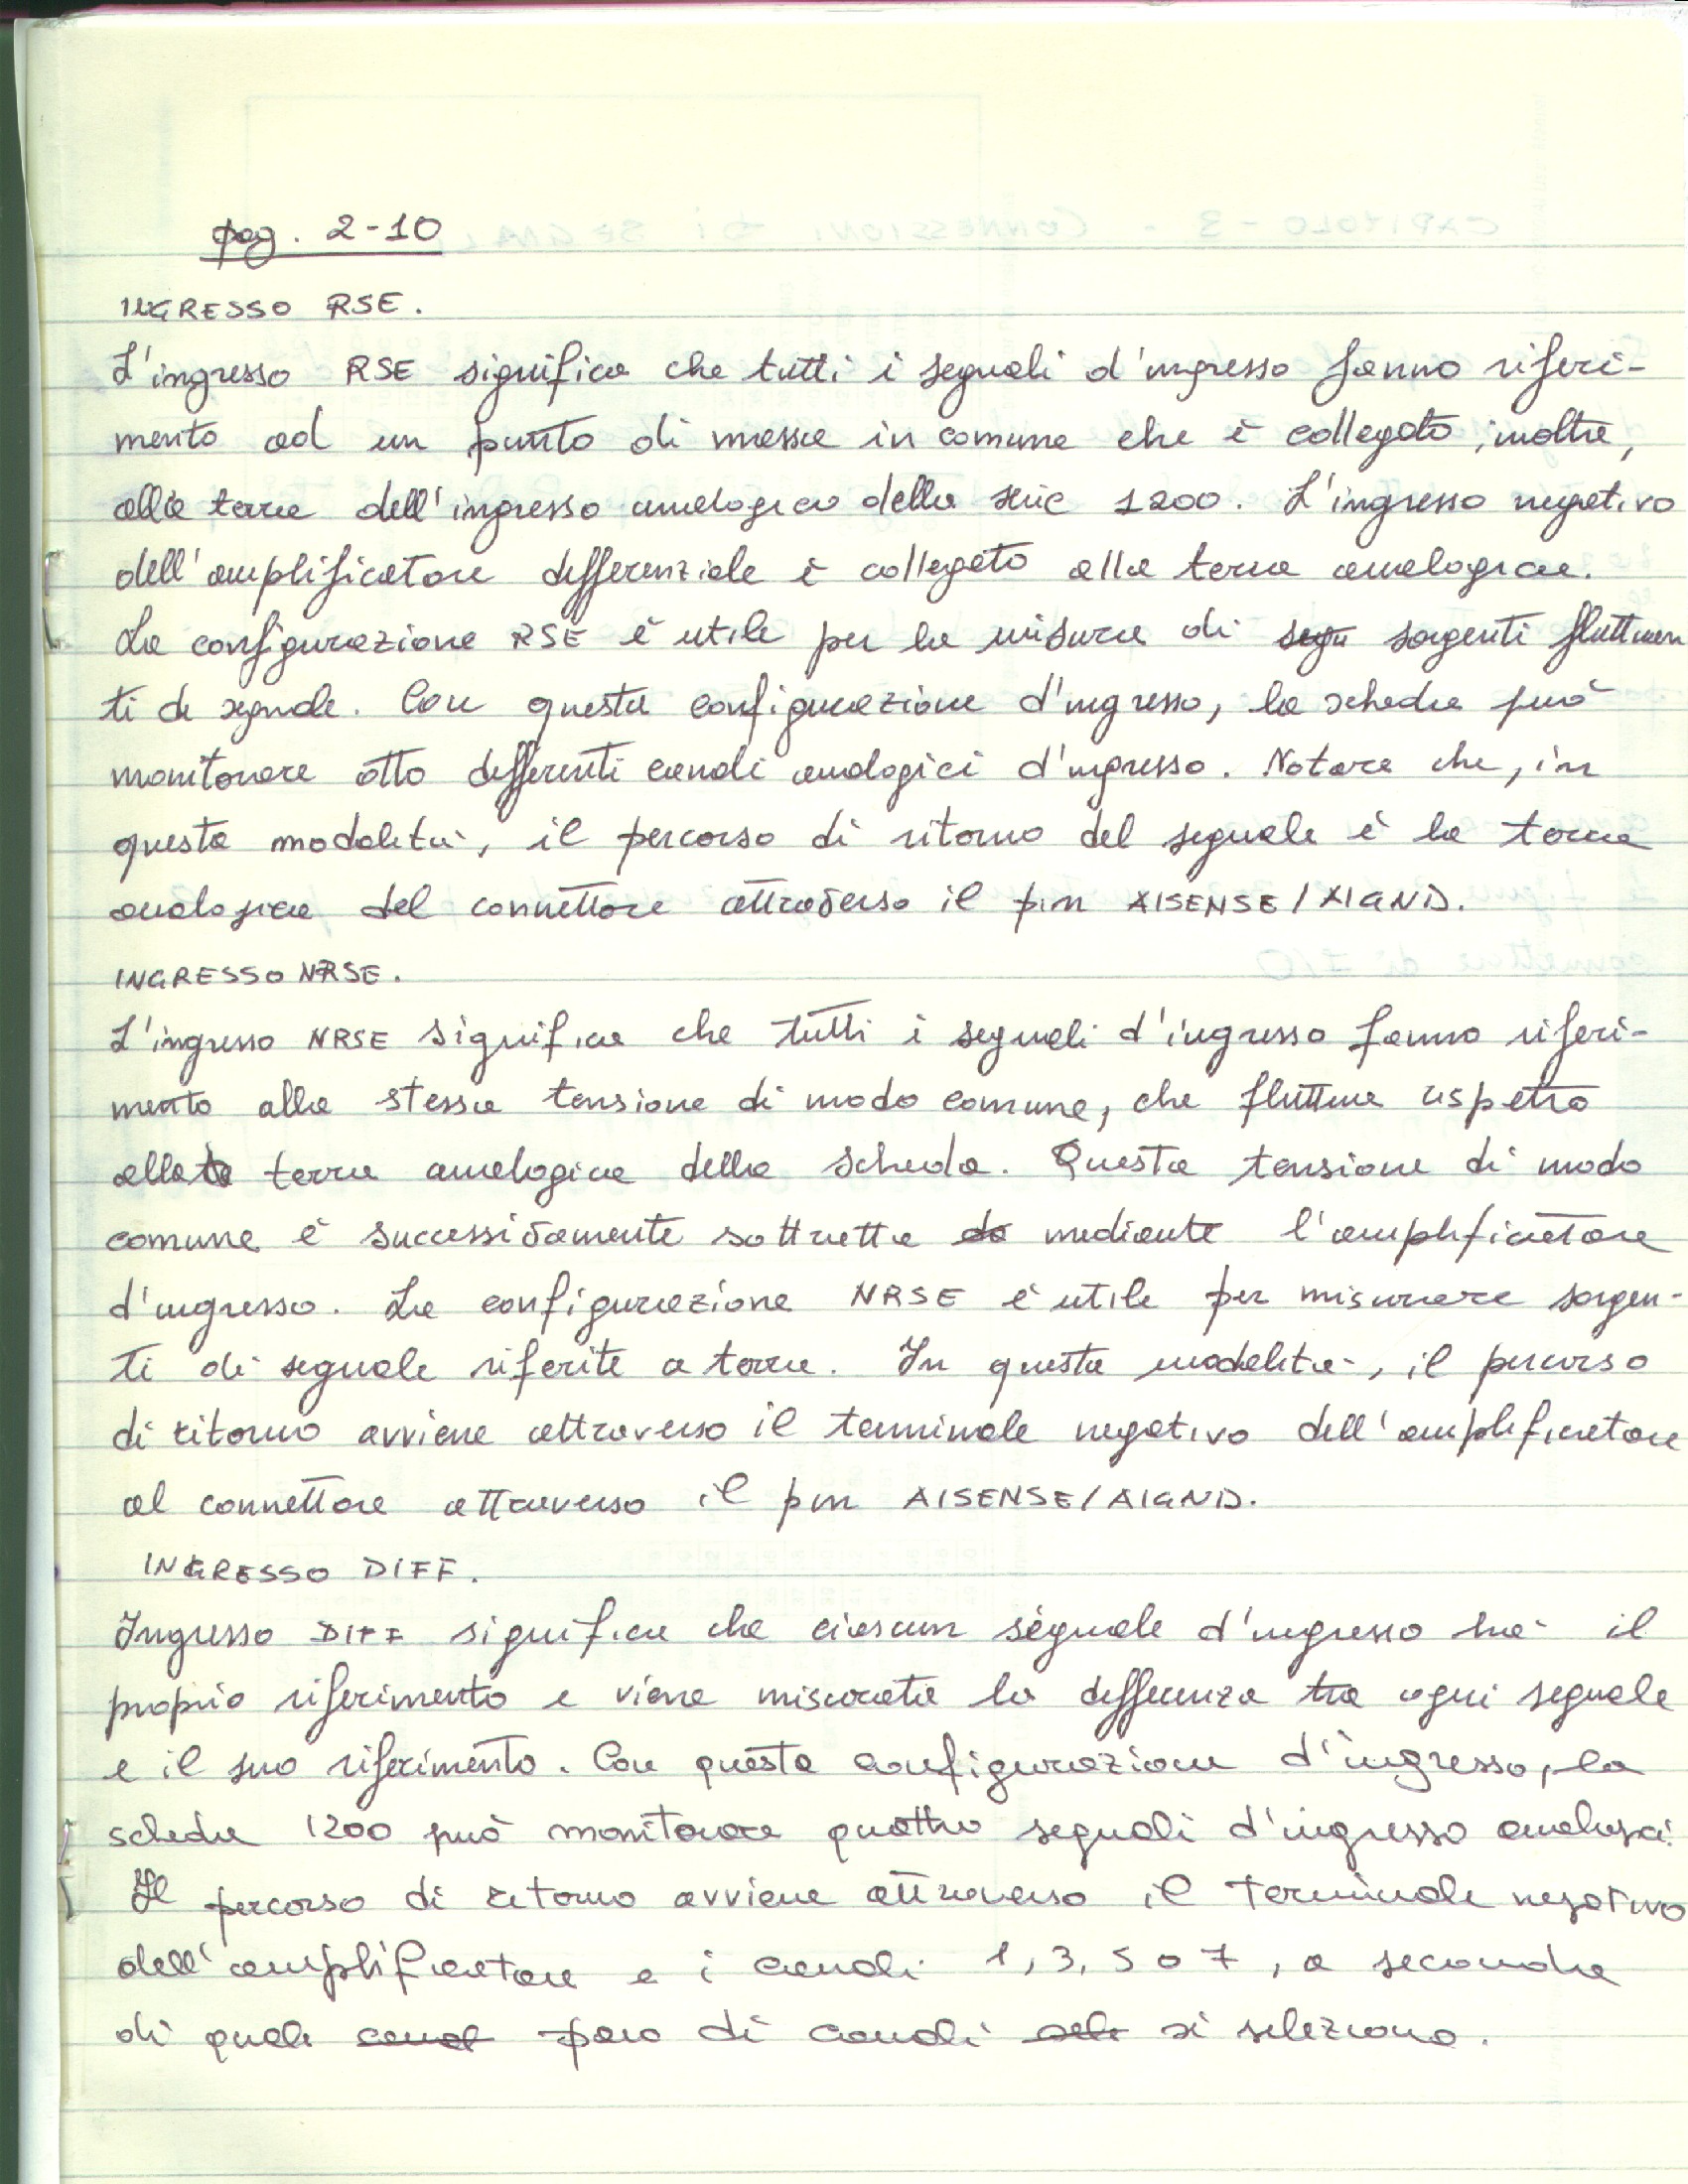 pag. 2-10
INGRESSO RSE.
L'ingresso RSE significa che tutti i segnali d'ingresso fanno riferi-
mento ad un punto di massa in comune che è collegato, inoltre,
alla terra dell'ingresso analogico della serie 1200. L'ingresso negativo
dell'amplificatore differenziale è collegato alla terra analogica.
La configurazione RSE è utile per la misura di segn sorgenti fluttuan
ti di segnale. Con questa configurazione d'ingresso, la scheda può
monitorare otto differenti canali analogici d'ingresso. Notare che, in
questa modalità, il percorso di ritorno del segnale è la terra
analogica del connettore attraverso il pin AISENSE/AIGND.
INGRESSO NRSE.
L'ingresso NRSE significa che tutti i segnali d'ingresso fanno riferi-
mento alla stessa tensione di modo comune, che fluttua rispetto
alla terra analogica della scheda. Questa tensione di modo
comune è successivamente sottratta da mediante l'amplificatore
d'ingresso. La configurazione NRSE è utile per misurare sorgen-
ti di segnale riferite a terra. In questa modalità, il percorso
di ritorno avviene attraverso il terminale negativo dell'amplificatore
al connettore attraverso il pin AISENSE/AIGND.
INGRESSO DIFF.
Ingresso DIFF significa che ciascun segnale d'ingresso ha il
proprio riferimento e viene misurata la differenza tra ogni segnale
e il suo riferimento. Con questa configurazione d'ingresso, la
scheda 1200 può monitorare quattro segnali d'ingresso analogici.
Il percorso di ritorno avviene attraverso il terminale negativo
dell'amplificatore e i canali 1, 3, 5 o 7, a seconda
di quale canal paio di canali sele si seleziona.